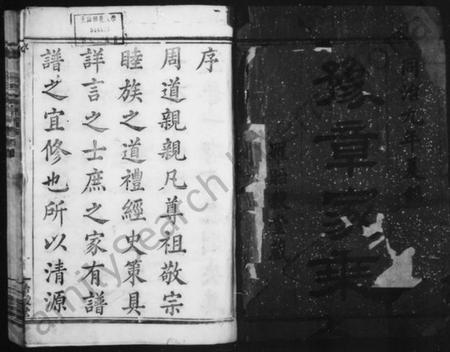 同治九年
豫章家乘
序
周道親親凡尊祖敬宗
睦族之道禮經史策具
詳言之士庶之家有譜
譜之宜修也所以清源
FamilySearch